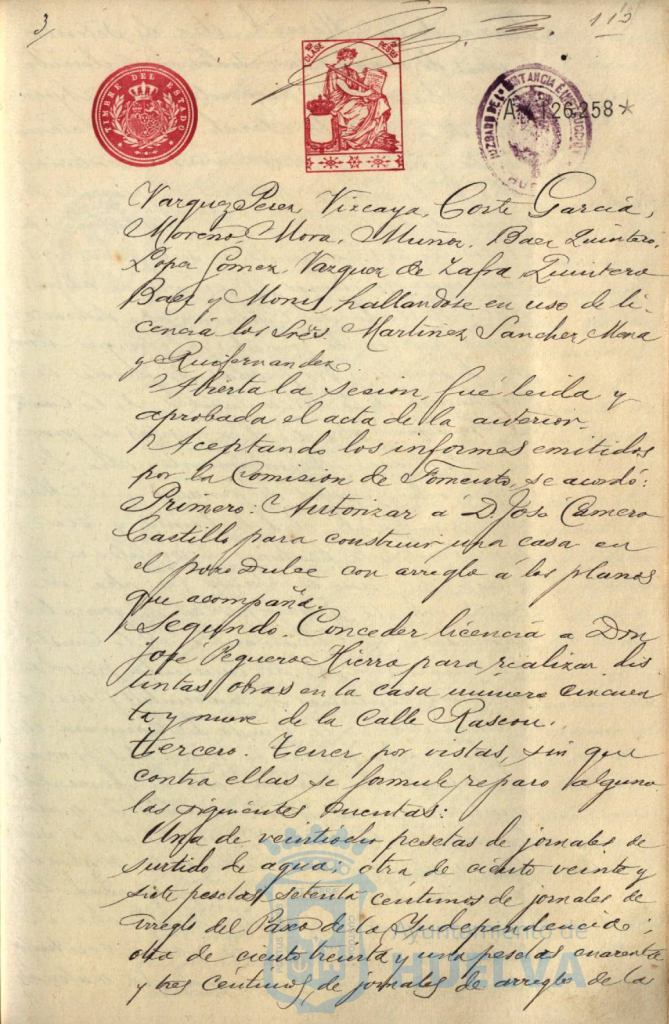 3
113
TIMBRE DEL ESTADO
CLASE PESETAS
JUZGADO DE 1ª INSTANCIA E INSTRUCCION
HUELVA
A 126,258*
Vazquez Perez, Vizcaya, Corte Garcia,
Moreno, Mora, Muñoz, Baez Quintero,
Lopez Gomez, Vazquez de Zafra, Quintero
Baez y Monis, hallandose en uso de li-
cencia los Sres. Martinez Sanchez, Mora
y Ruifernandez.
Abierta la sesion, fué leida y
aprobada el acta de la anterior.
Aceptando los informes emitidos
por la Comision de Fomento, se acordó:
Primero: Autorizar á D. Jose Camero
Castillo para construir una casa en
el pozo dulce con arreglo á los planos
que acompaña.
Segundo. Conceder licencia a Don
José Peguero Hierro para realizar dis
tintas obras en la casa número cincuen
ta y nueve de la Calle Rascon.
Tercero. Tener por vistas, sin que
contra ellas se formule reparo alguno
las siguientes cuentas:
Una de veintiocho pesetas de jornales de
surtido de agua; otra de ciento veinte y
siete pesetas setenta céntimos de jornales de
arreglo del Paseo de la Yndependencia;
otra de ciento treinta y una pesetas cuarenta
y tres céntimos de jornales de arreglo de la
Ayuntamiento de
HUELVA